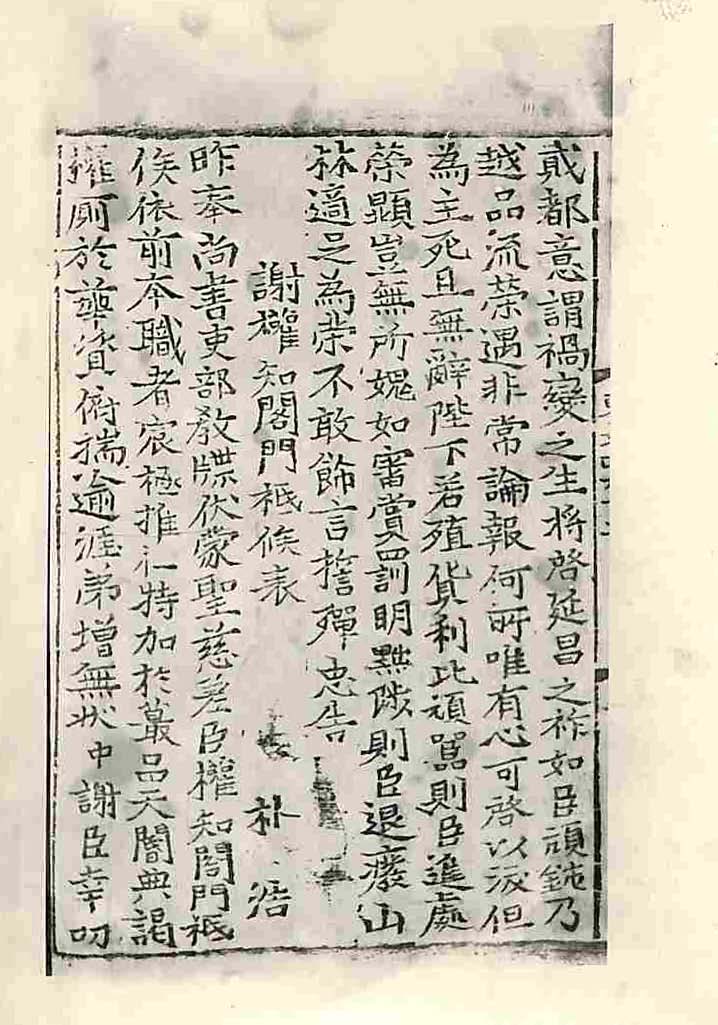 貳都意謂禍變之生將啓延昌之祚如臣頑鈍乃
越品流榮遇非常論報何所唯有心可啓以沃但
為主死且無辭陛下若殖貨利比頑嚚則臣進處
榮顯豈無所媿如審賞罰明黜陟則臣退癈山
林適足為榮不敢飾言誓殫忠告
謝權知閣門祗候表
朴浩
昨奉尚書吏部教牒伏蒙聖慈差臣權知閤門祗
候依前本職者宸極推仁特加於蕞品天閽典謁
擢厠於華資俯揣逾涯弟增無狀中謝臣幸叨